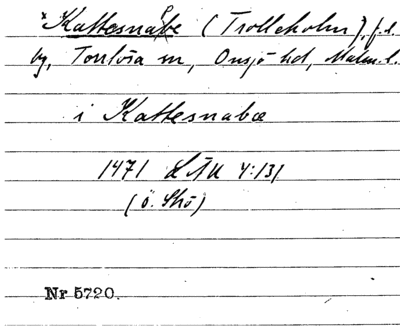 *Kattesnabe (Trolleholm), f.d.
by, Torrlösa sn, Onsjö hd, Malm. l.
i Kattesnabæ
1471 LÄU 4:131
(ö. Skö)
Nr 5720.